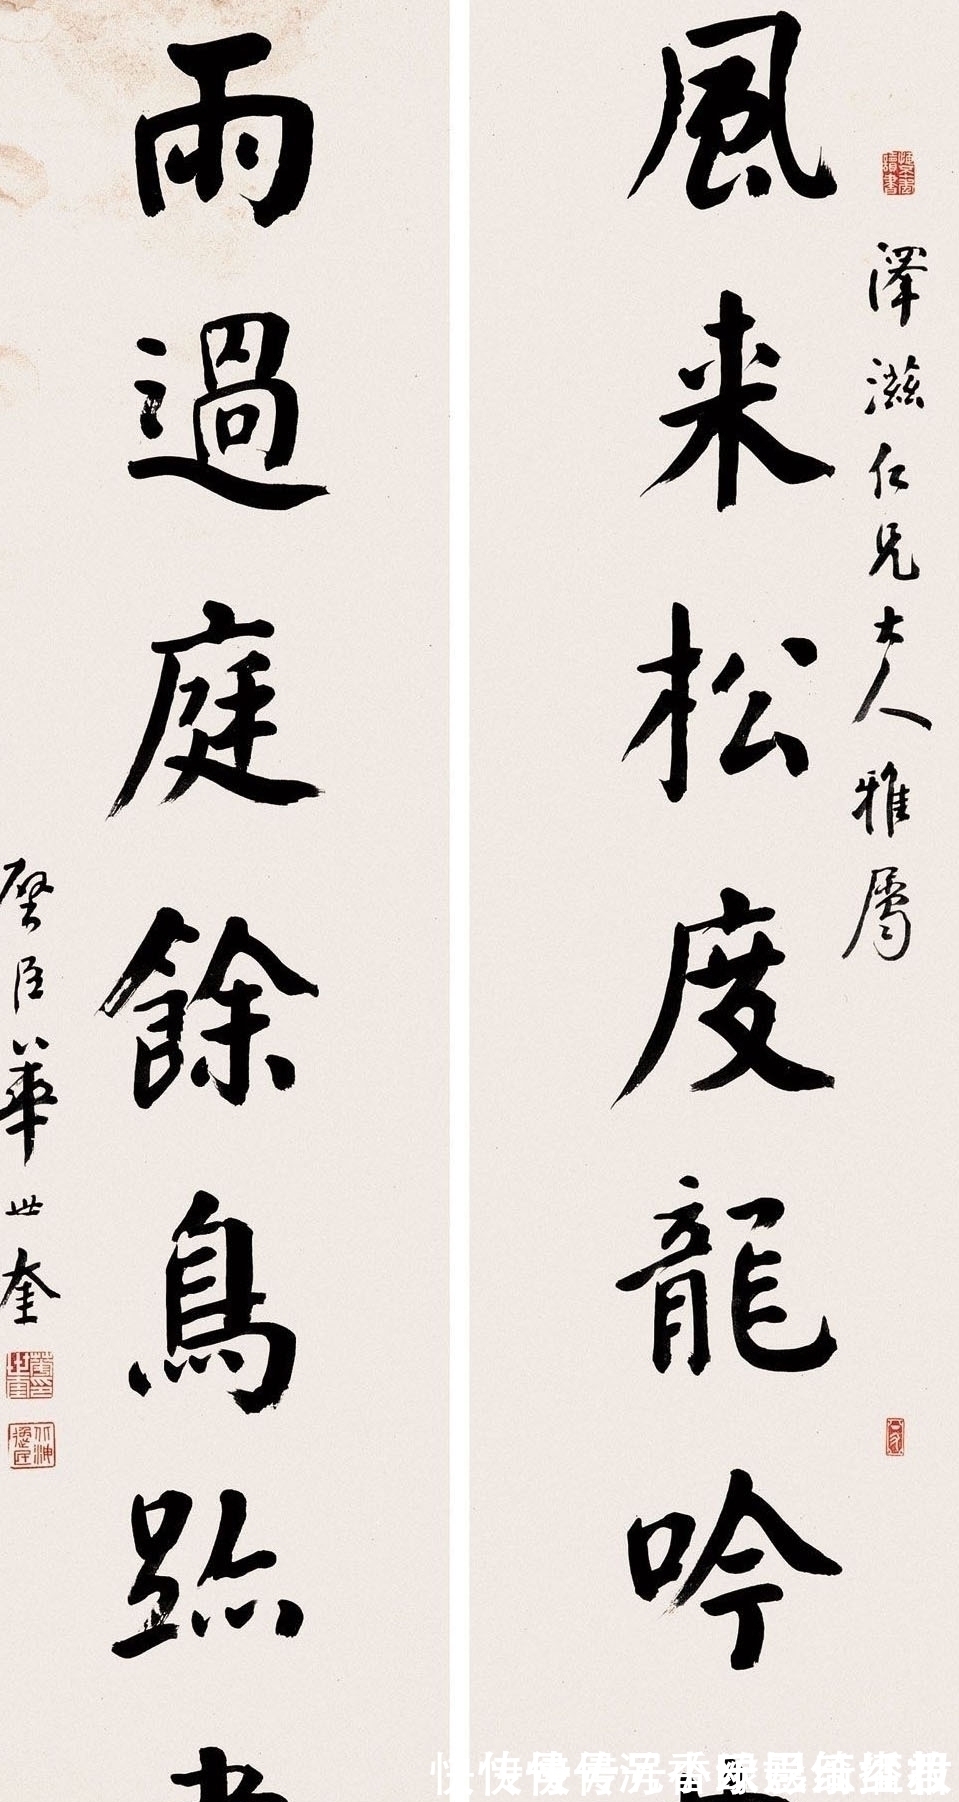 澤滋仁兄大人雅屬
風来松度龍吟
雨過庭餘鳥跡
璧臣華世奎